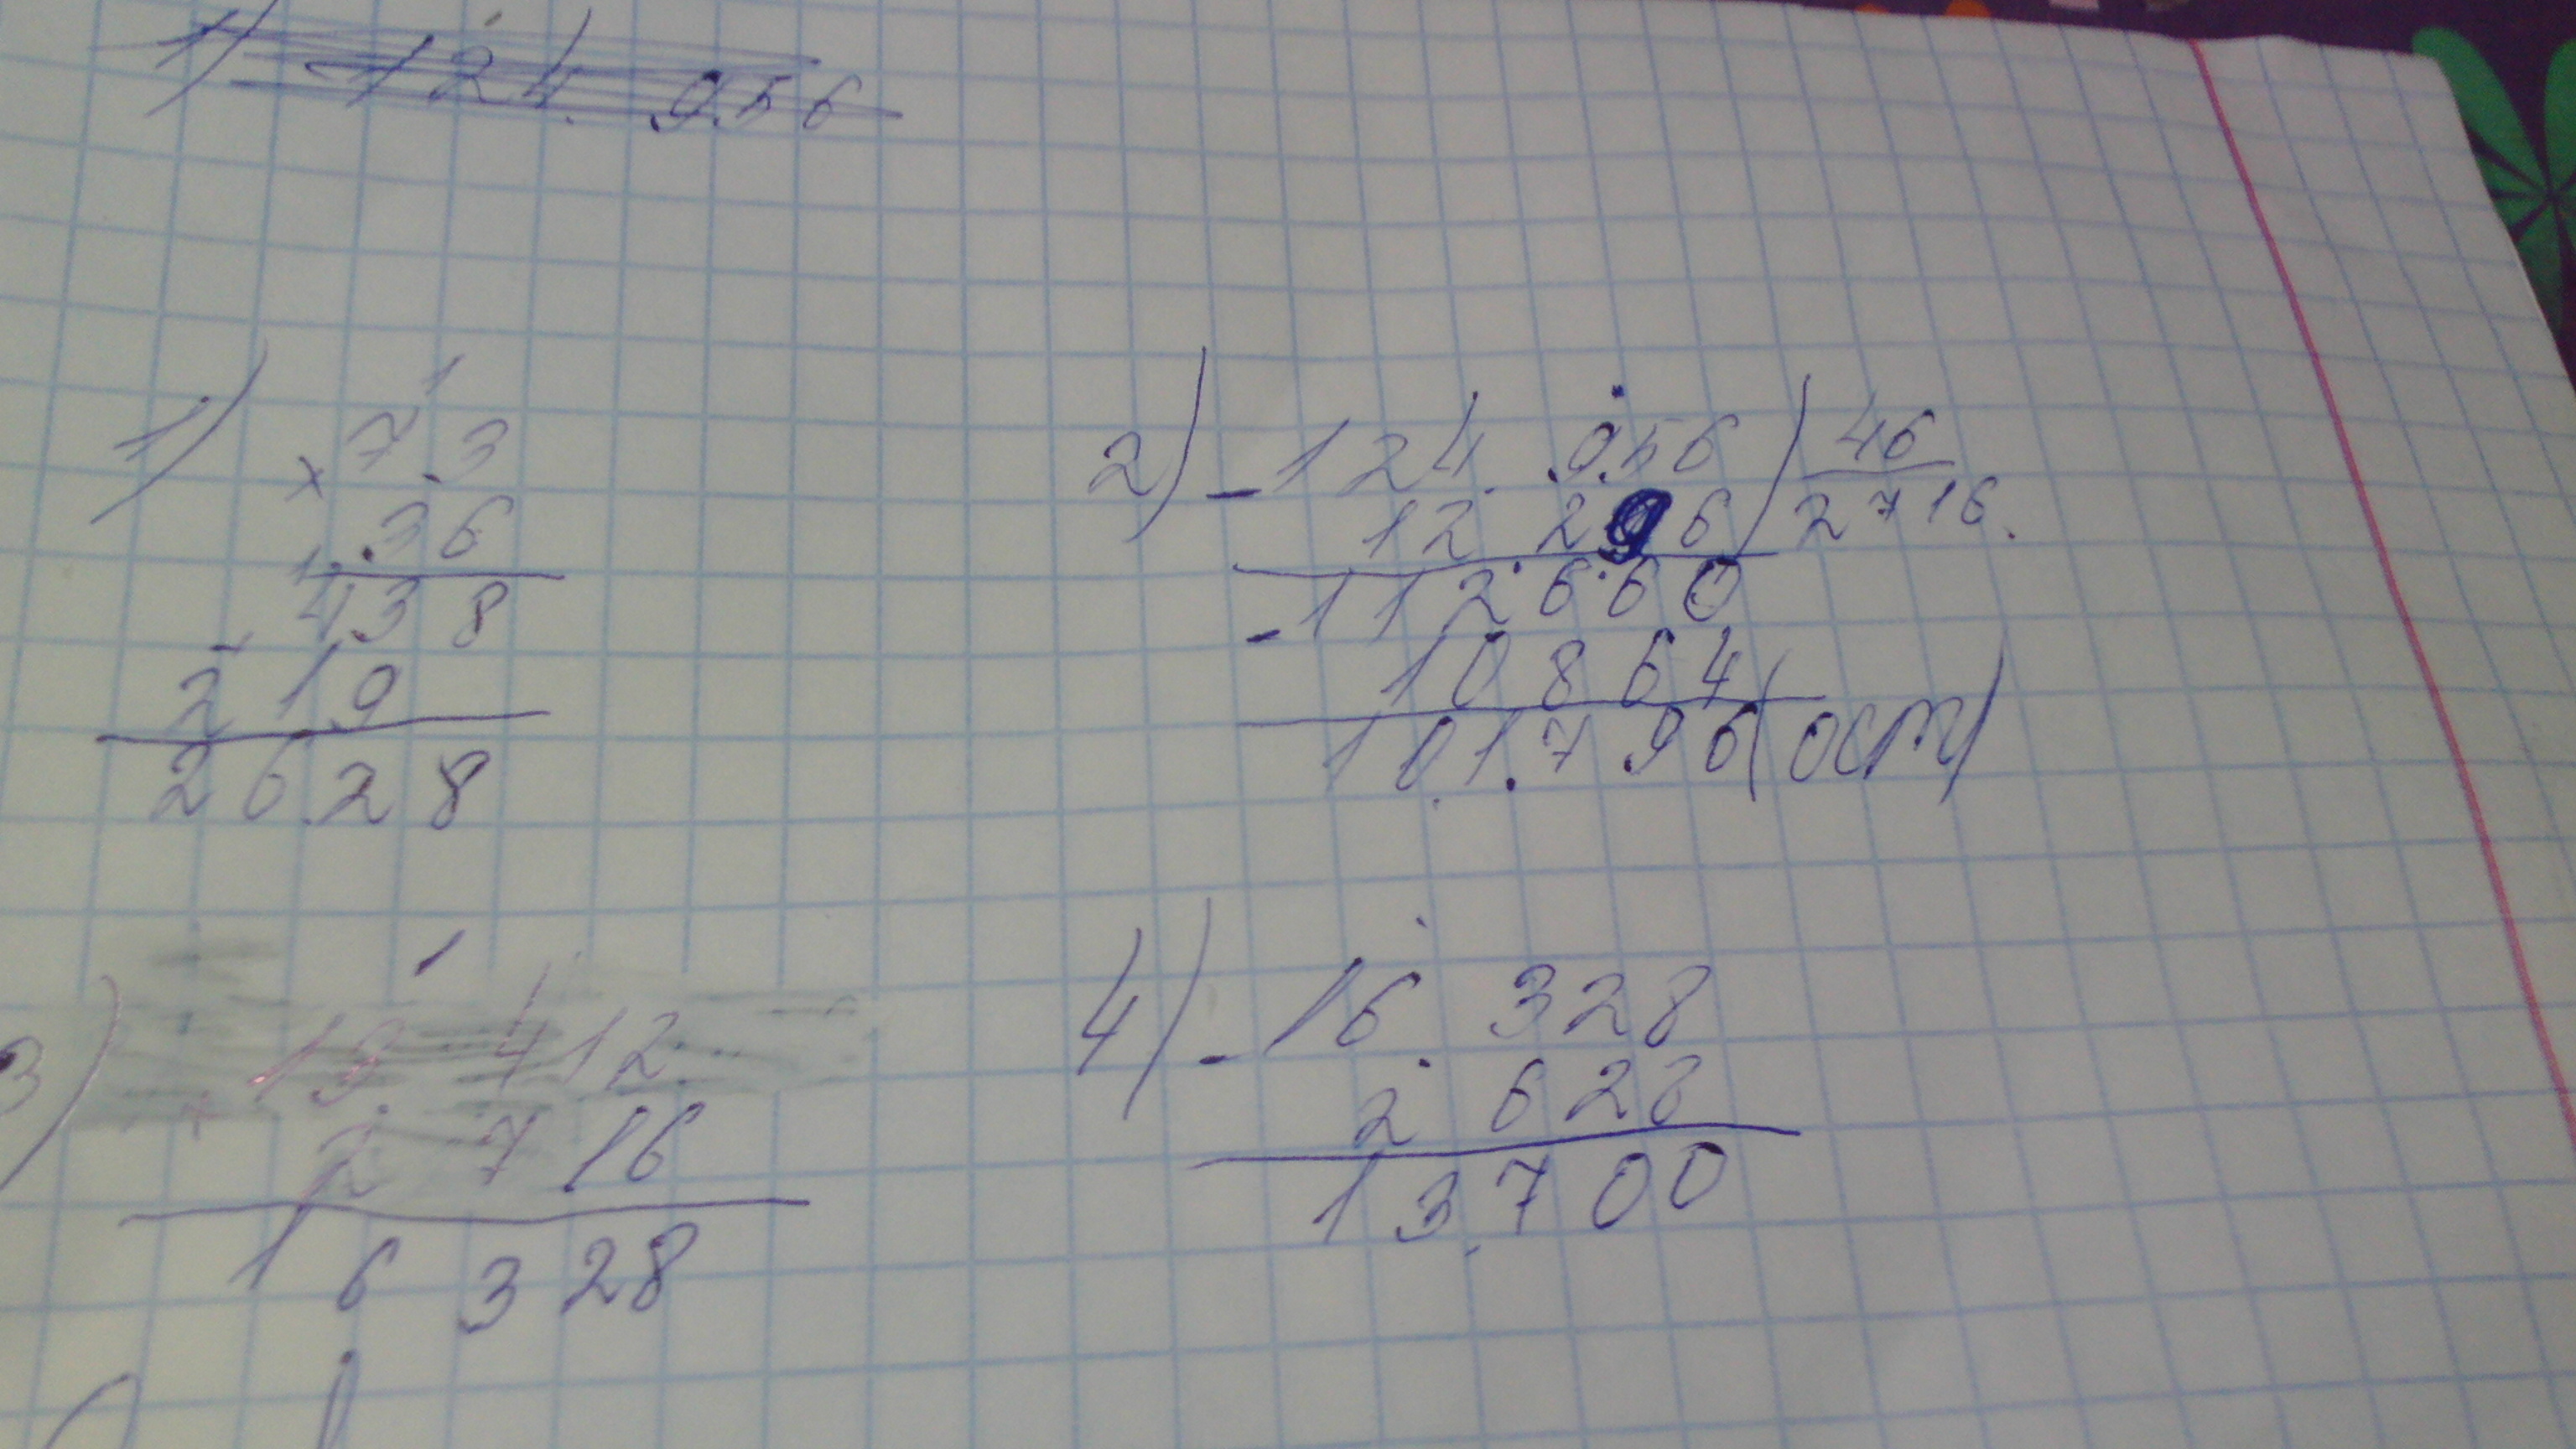 1) 124 956
1) 1
× 73
36
438
219
2628
2) - 124 956 | 46
12 296 2716
- 112660
10864
101796 (ост)
3) 1
+ 13 412
2 716
16 328
4) - 16 328
2 628
13 700